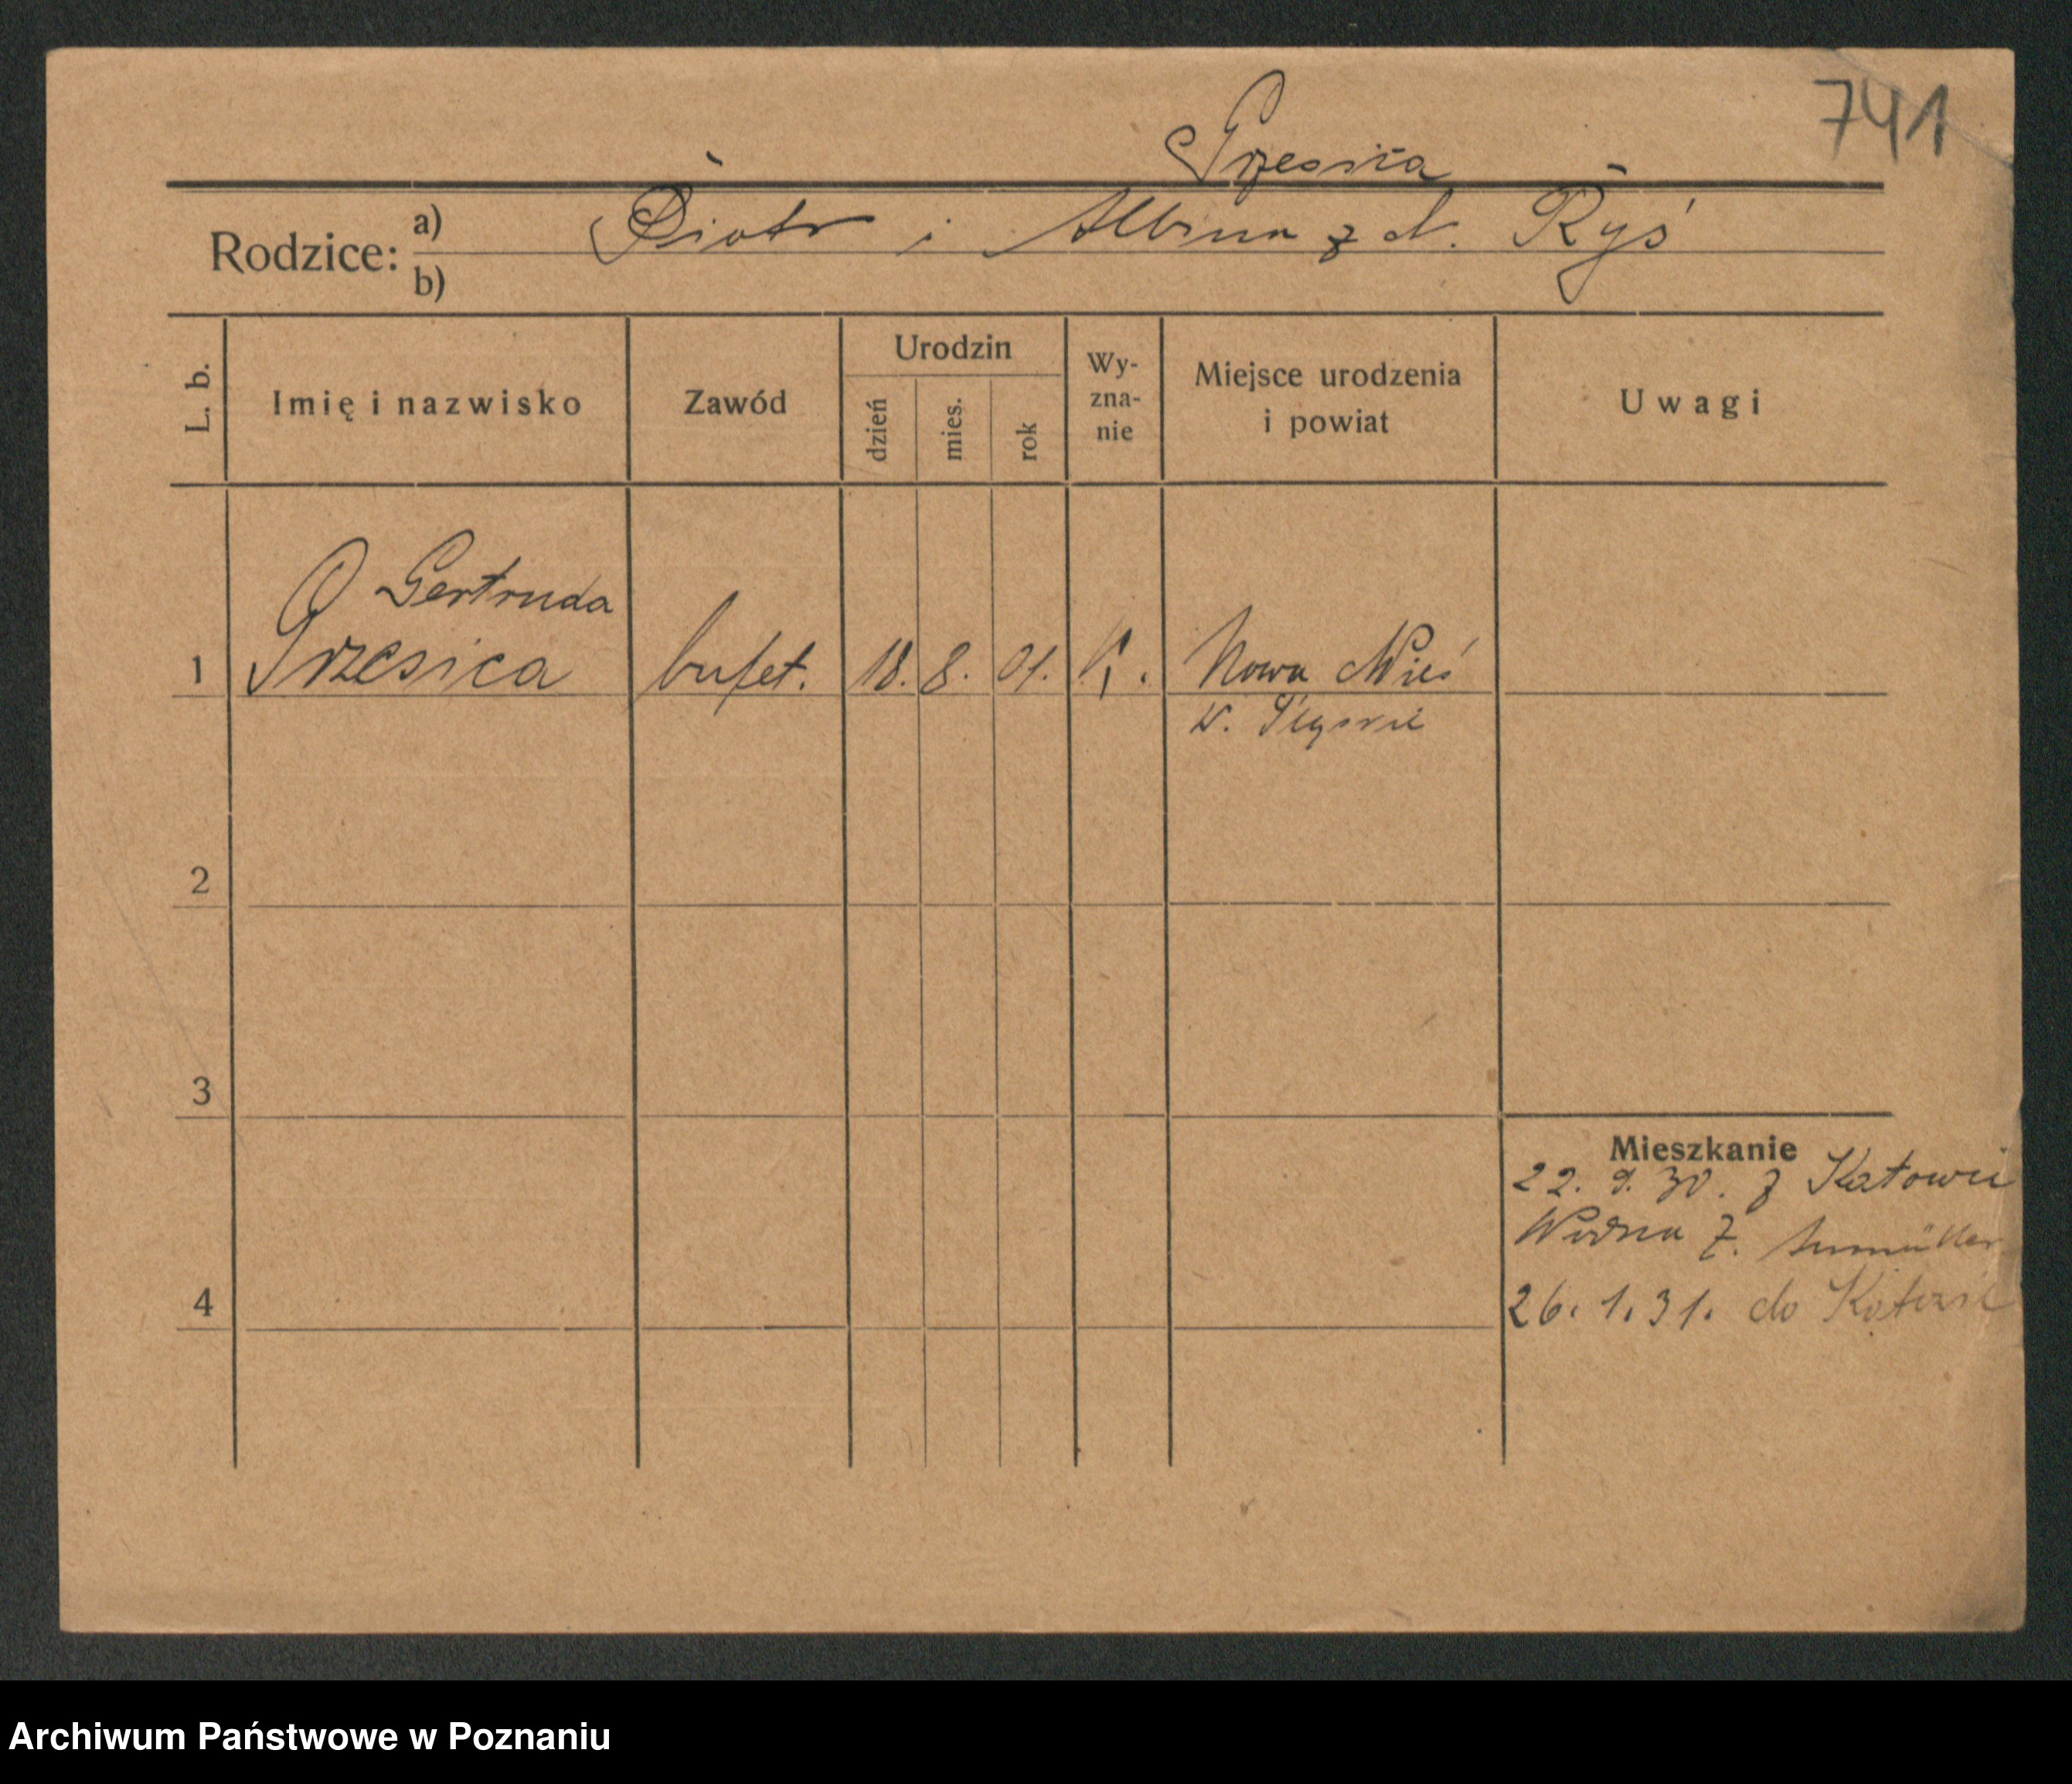 741
Grzesica
Rodzice: a) Piotr i Albina z d. Ryś
b)
L. b.
Imię i nazwisko
Zawód
Urodzin
dzień
mies.
rok
Wy-
zna-
nie
Miejsce urodzenia
i powiat
Uwagi
Gertruda
1 Grzesica bufet. 18. 8. 01. K. Nowa Wieś
w.
2
3
Mieszkanie
22. 9. 30. z Katowic
Wodna 7.
4 26. 1. 31. do
Archiwum Państwowe w Poznaniu